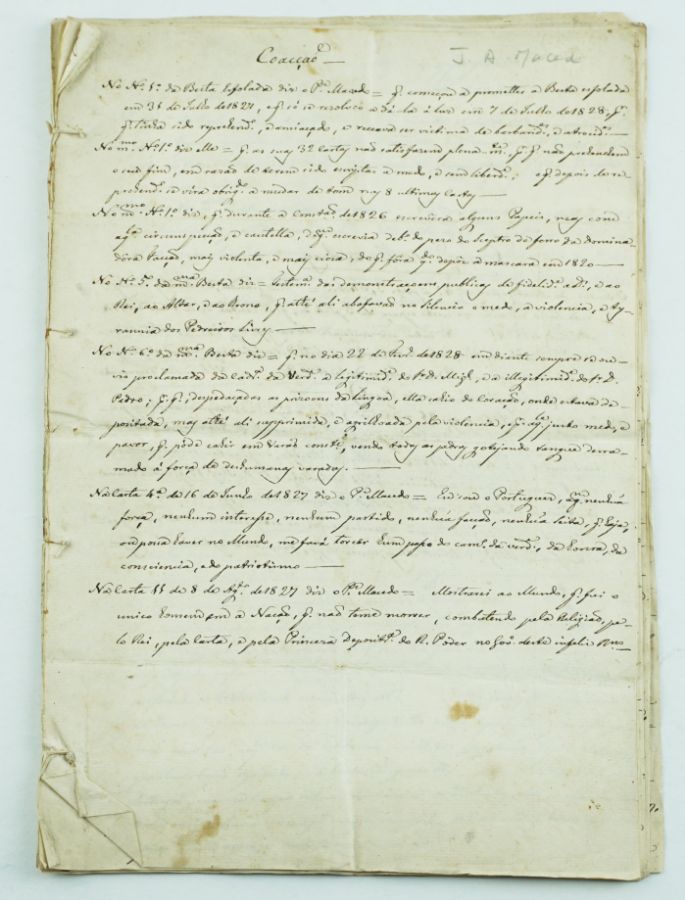 Coacção
J. A. Maced
No N.º 1.º da Besta Esfolada diz o P.e Macedo = q. começou a prometter a Besta esfolada
em 31 de Julho de 1827, e q. só se resolveo a dá-la á luz em 7 de Julho de 1828; p.r
q. tinha sido reprehend.º, e ameaçado, e receava ser victima de
No m.mo N.º 1.º diz elle = q. as suas 32 cartas não satisfazem plena- m.te, p.r q. não prehendem
o seu fim, em razão de terem sido escriptas a medo, e sem liberd.e; e q. depois de re-
prehend.º se vira obrig.º a mudar de tom nas 8 ultimas cartas
No m.mo N.º 1.º diz, q. durante a Const.am de 1826 escrevêra alguns Papeis, mas com
circunspecção, e cautella, escrevia deb.º do pezo do Sceptro de ferro da domina-
dôra Facção, mais violenta, e mais cioza, do q. fôra q.do depôz a mascara em 1820
No N.º 5.º da m.ma Besta diz = das demonstraçoens publicas de fidelid.e ao
Rei, ao Altar, e ao Trono, q. até ali abafavão no silencio o medo, a violencia, e Ty-
rannia dos Pedreiros Livres
No N.º 6.º da m.ma Besta diz = q. no dia 22 de Fev.º de 1828 em diante sempre se ou-
vio proclamada da Cad.ra da Verd.e a legitimid.e do Sr. D. Mig.l, e a illegitimid.e do Sr. D.
Pedro; p.r q., despedaçadas as prizoens da lingoa, ella sahio do Coração, onde estava de-
pozitada, mas até ali supprimida, e agrilhoada pela violencia, e p.r justo medo, e
pavor, q. póde cahir em Varão const.e, vendo todas as pedras gotejando sangue derra-
mado á força de deshumanas varadas.
Na Carta 4.ª de 16 de Junho de 1827 diz o P.e Macedo = Eu sou o Portuguez, a q.m nenhũa
força, nenhum interesse, nenhum partido, nenhũa facção, nenhũa Seita, q. haja,
ou possa haver no Mundo, me fará torcer hum passo do cam.º da verd.e, da honra, da
consciencia, e do patriotismo
Na Carta 11 de 8 de Ag.to de 1827 diz o P.e Macedo = Mostrarei ao Mundo, q. fui o
unico homem em a Nação, q. não teme morrer, combatendo pela Religião, pe-
lo Rei, pela Carta, e pela Princeza Deposit.ª do R. Poder no Gov.º deste infeliz R.no